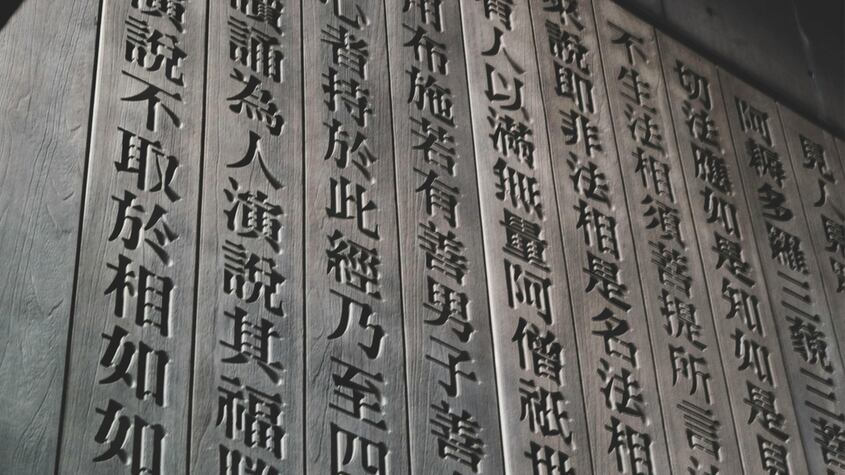 見人見
阿耨多羅三藐三菩
切法應如是知如是見
不生法相須菩提所言法
來說即非法相是名法相
有人以滿無量阿僧祇世
用布施若有善男子善
心者持於此經乃至四
讀誦為人演說其福勝
演說不取於相如如